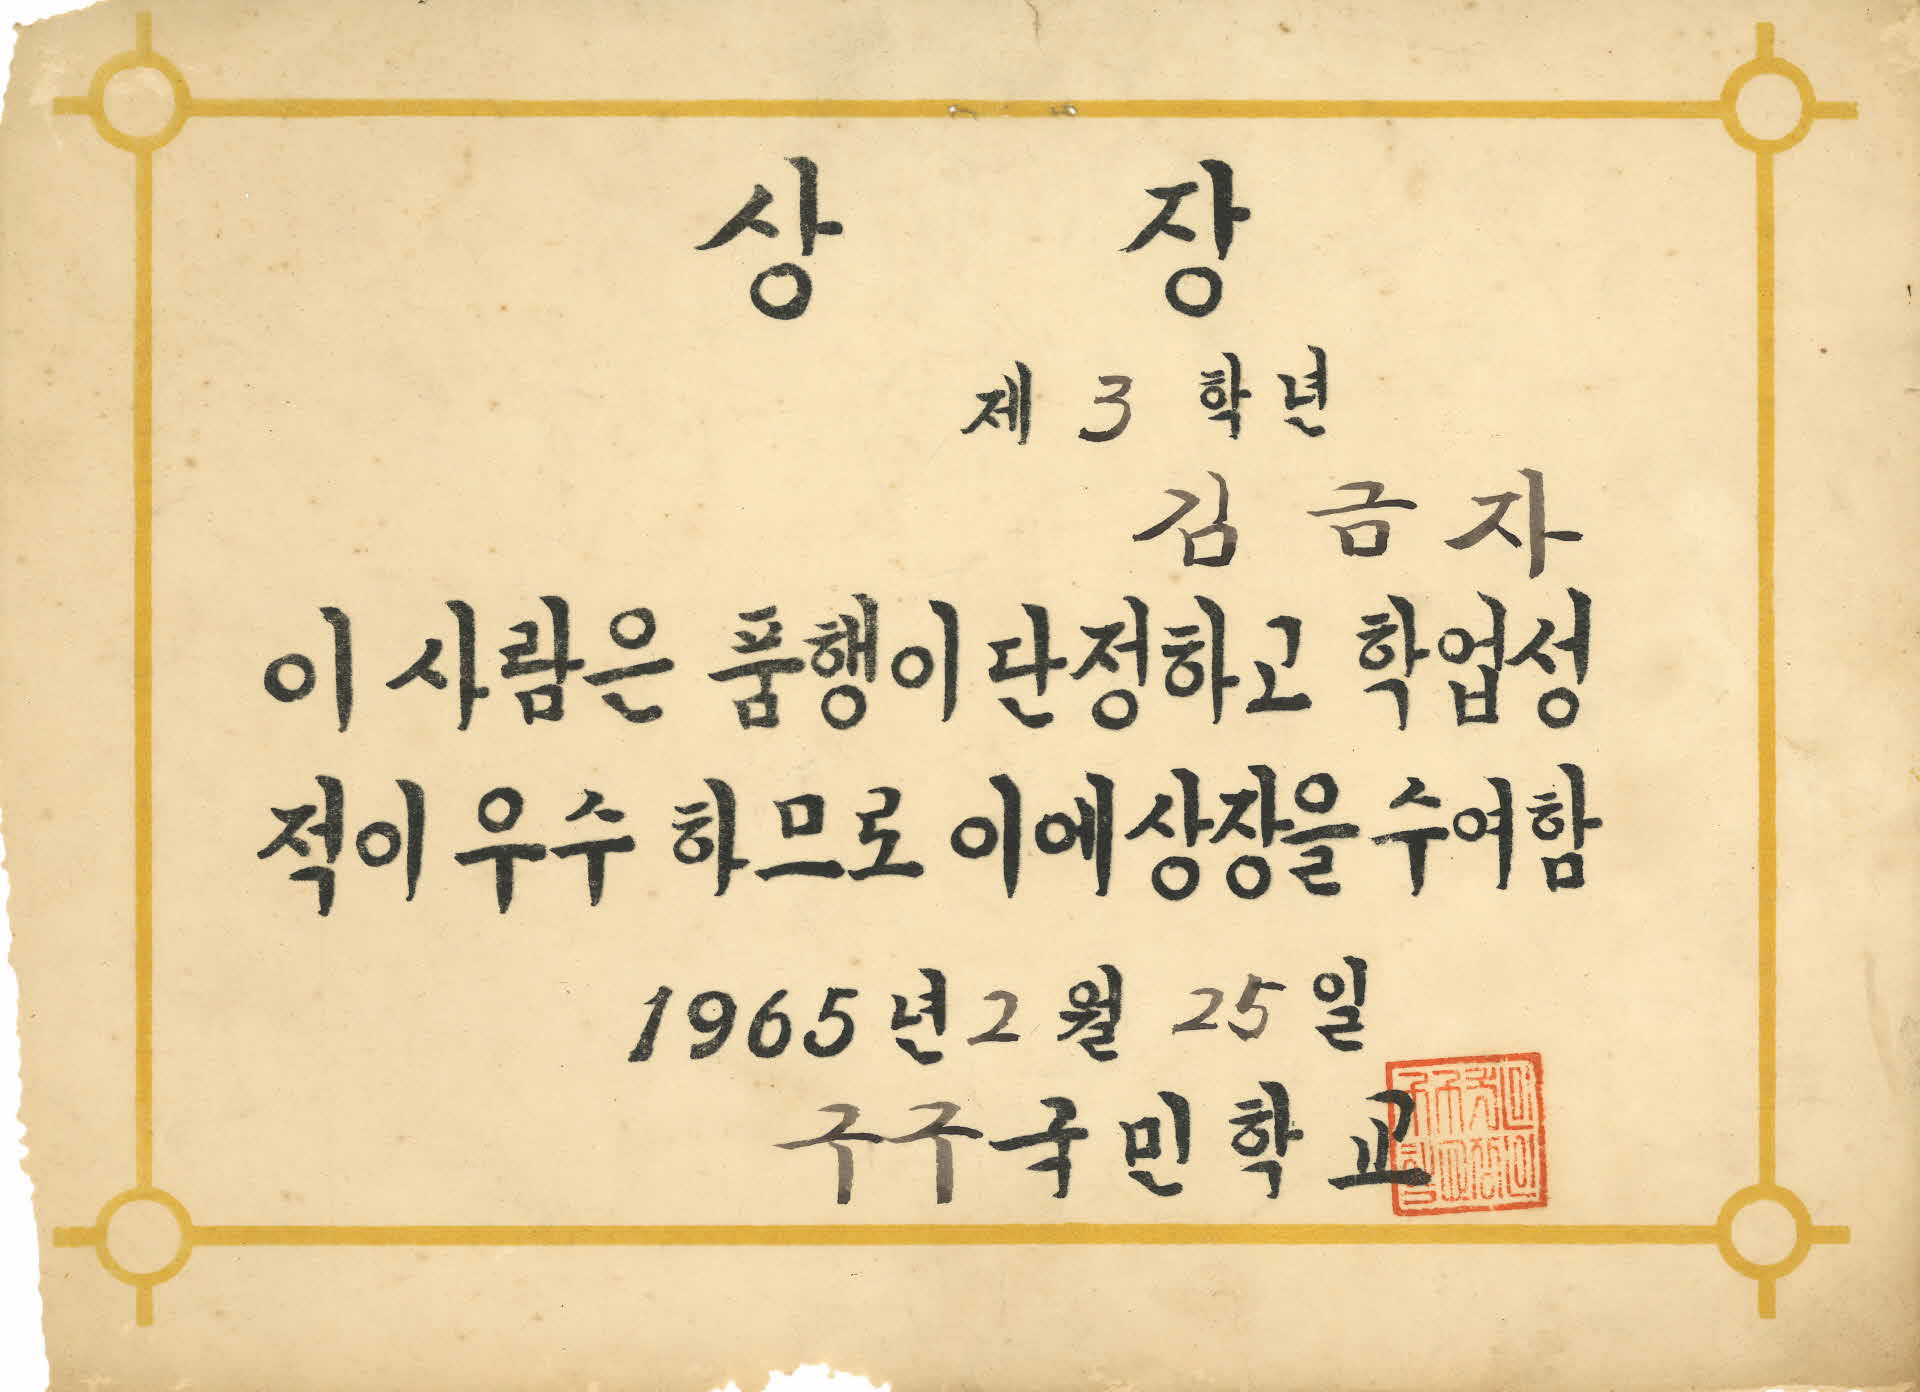 상 장
제 3 학년
김 금 자
이 사람은 품행이 단정하고 학업성
적이 우수 하므로 이에 상장을 수여함
1965년 2월 25일
구구국민학교